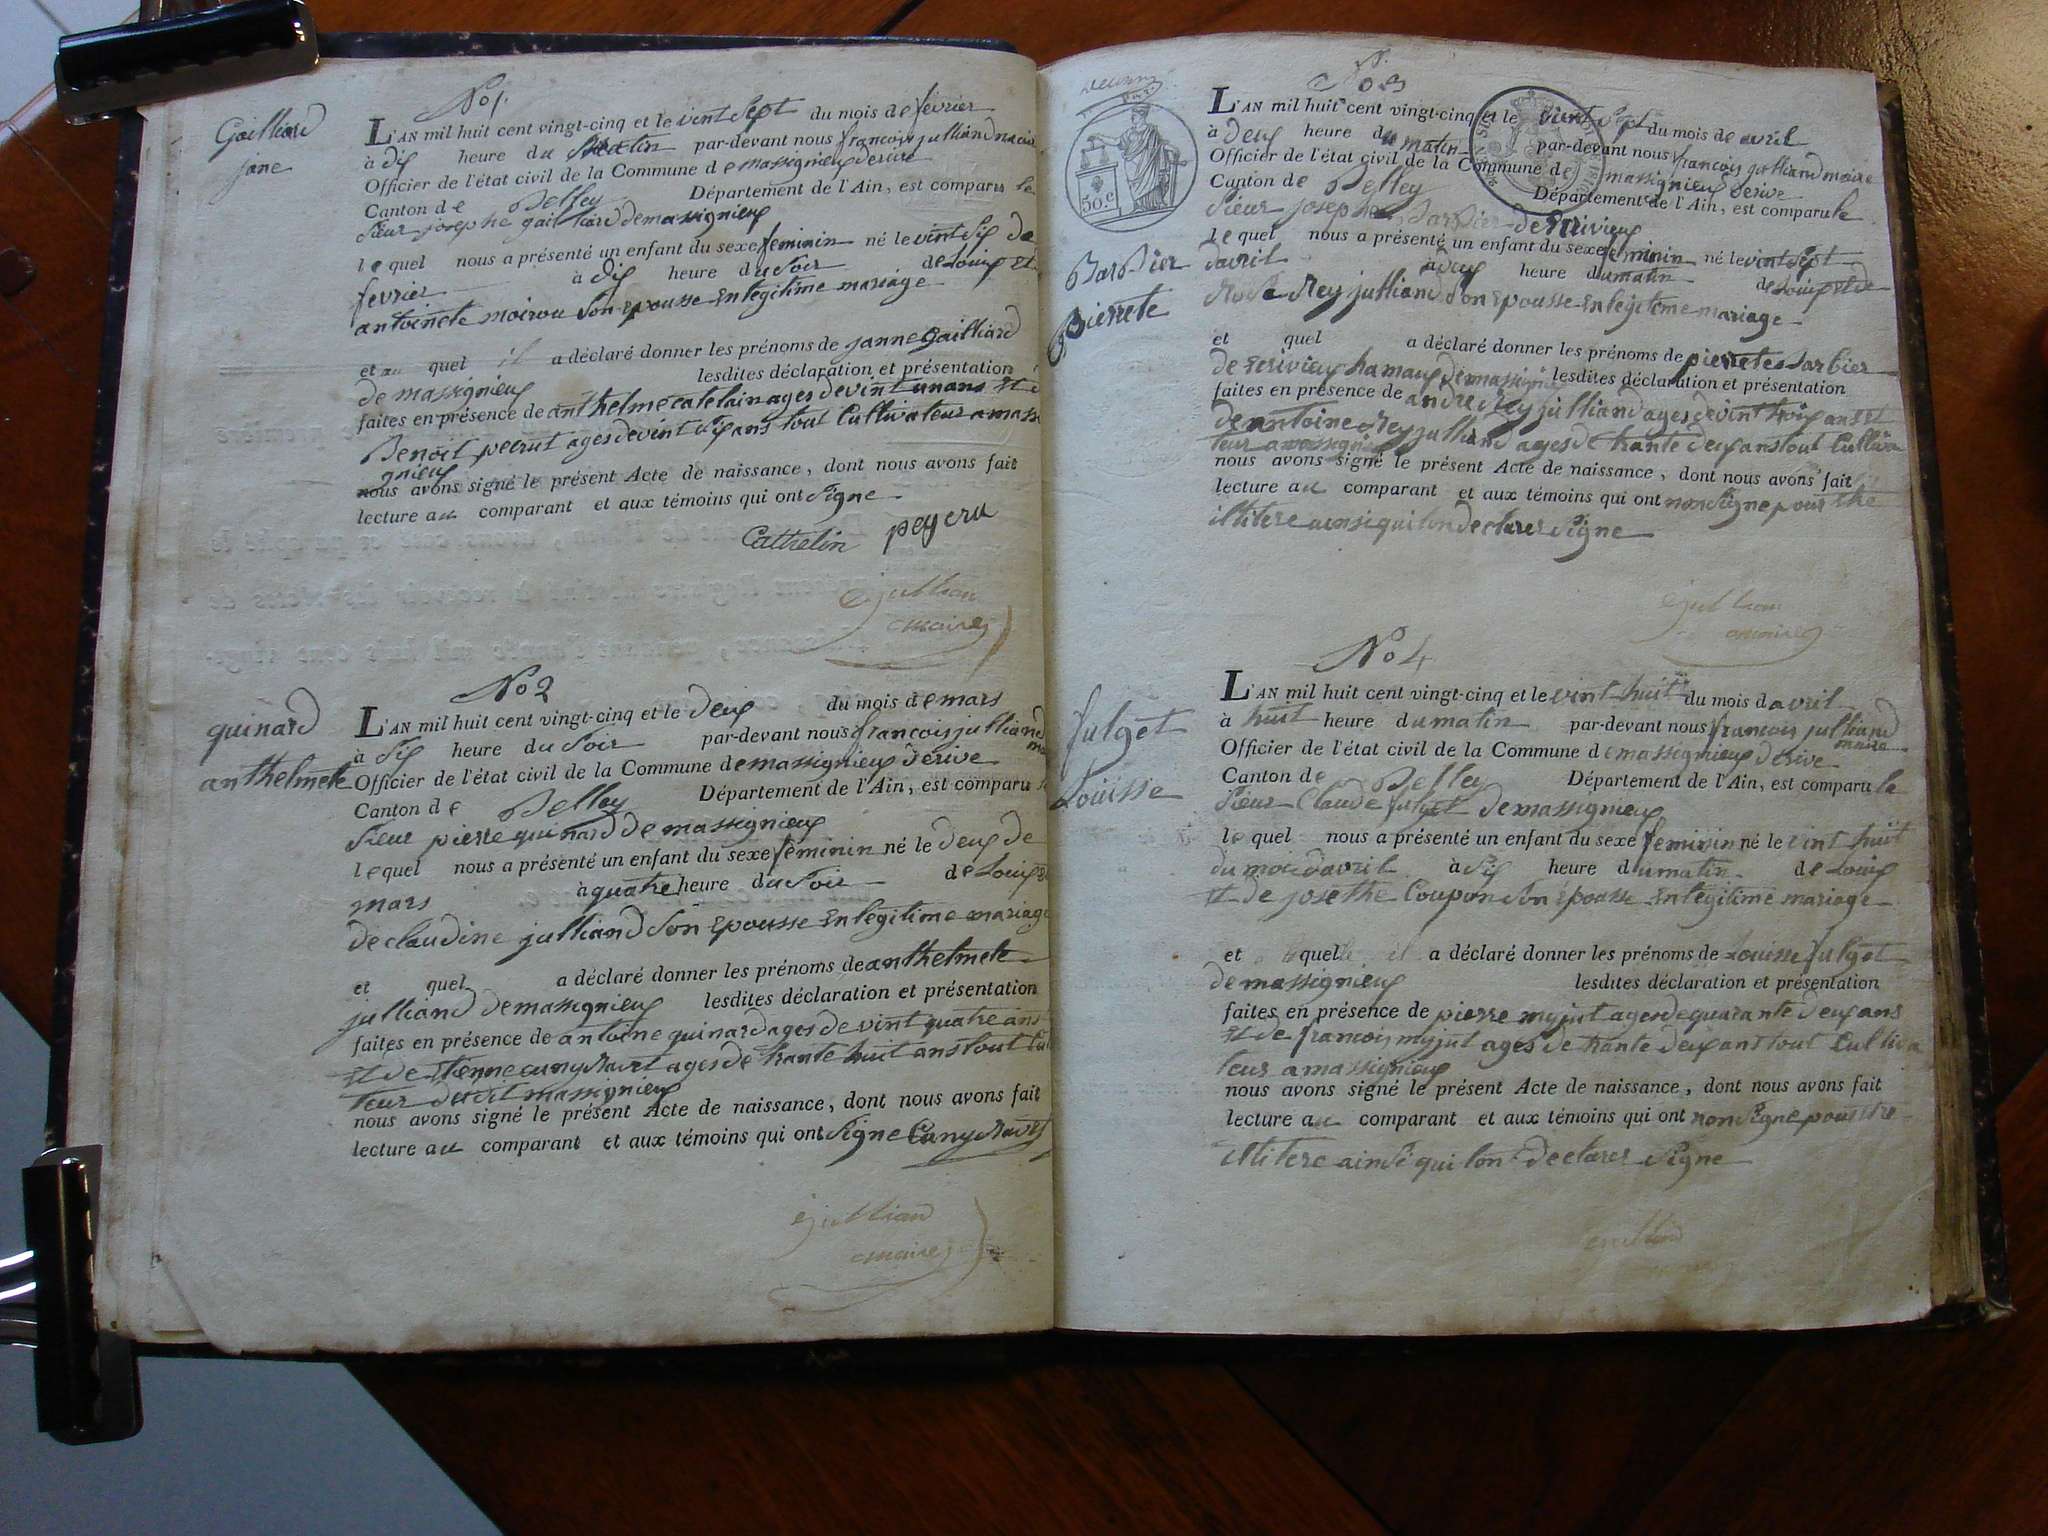 No 1.
Gailliard
jane
L'AN mil huit cent vingt-cinq et le vint sept du mois de février
à dix heure du matin par-devant nous françois julliand maire
Officier de l'état civil de la Commune de massignieux derive
Canton de Belley Département de l'Ain, est comparu le
sieur josephe gailliard de massignieux
lequel nous a présenté un enfant du sexe feminin né le vint six de
fevrier à dix heure du soir de Louis et
antoinete moirou son epousse en legitime mariage
et au quel il a déclaré donner les prénoms de janne gailliard
de massignieux lesdites déclaration et présentation
faites en présence de anthelme catelain ages de vint un ans et
Benoit peecrut ages de vint six ans tout Cultivateur a mass
gnieux
nous avons signé le présent Acte de naissance, dont nous avons fait
lecture au comparant et aux témoins qui ont signe
Cathelin peyeru
ejullian
maire
No 2
quinard
anthelmete
L'AN mil huit cent vingt-cinq et le deux du mois de mars
à six heure du soir par-devant nous francois julliand
ma
Officier de l'état civil de la Commune de massignieux derive
Canton de Belley Département de l'Ain, est comparu
sieur pierre quinard de massignieux
lequel nous a présenté un enfant du sexe feminin né le deux de
mars à quatre heure du soir de Louis
de claudine julliand son epousse en legitime mariage
et quel a déclaré donner les prénoms de anthelmete
julliand de massignieux lesdites déclaration et présentation
faites en présence de antoine quinard ages de vint quatre ans
et de etienne cuny ravet ages de trante huit ans tout Cul
teur dudit massignieux
nous avons signé le présent Acte de naissance, dont nous avons fait
lecture au comparant et aux témoins qui ont signe Cuny Ravet
ejullian
maire
No 3
50.c
Barbier
Pierrete
L'AN mil huit cent vingt-cinq et le vint sept du mois de avril
à deux heure du matin par-devant nous francois julliand maire
Officier de l'état civil de la Commune de massignieux derive
Canton de Belley Département de l'Ain, est comparu le
sieur josephe Barbier de
lequel nous a présenté un enfant du sexe feminin né le vint sept
davril à deux heure du matin de Louis et de
Rey julliand son epousse en legitime mariage
et quel a déclaré donner les prénoms de pierrete Barbier
de hamaux de massigni lesdites déclaration et présentation
faites en présence de andre Rey julliand ages de vint troix ans et
de antoine Rey julliand ages de trante deux ans tout Cultiva
teur a massignieux
nous avons signé le présent Acte de naissance, dont nous avons fait
lecture au comparant et aux témoins qui ont non signe pour
illitere ainsi qui lon declarer signe
ejullian
maire
No 4
fulget
Louisse
L'AN mil huit cent vingt-cinq et le vint huit du mois davril
à huit heure du matin par-devant nous francois julliand
maire
Officier de l'état civil de la Commune de massignieux derive
Canton de Belley Département de l'Ain, est comparu le
sieur Claude fulget de massignieux
lequel nous a présenté un enfant du sexe feminin né le vint huit
du mois davril à six heure du matin de Louis
et de josethe Coupon son epousse en legitime mariage
et quel il a déclaré donner les prénoms de Louisse fulget
de massignieux lesdites déclaration et présentation
faites en présence de pierre myjut ages de quarante deux ans
et de francois myjut ages de trante deux ans tout Cultiva
teur a massignieux
nous avons signé le présent Acte de naissance, dont nous avons fait
lecture au comparant et aux témoins qui ont non signe pour
illitere ainsi qui lon declarer signe
ejullian